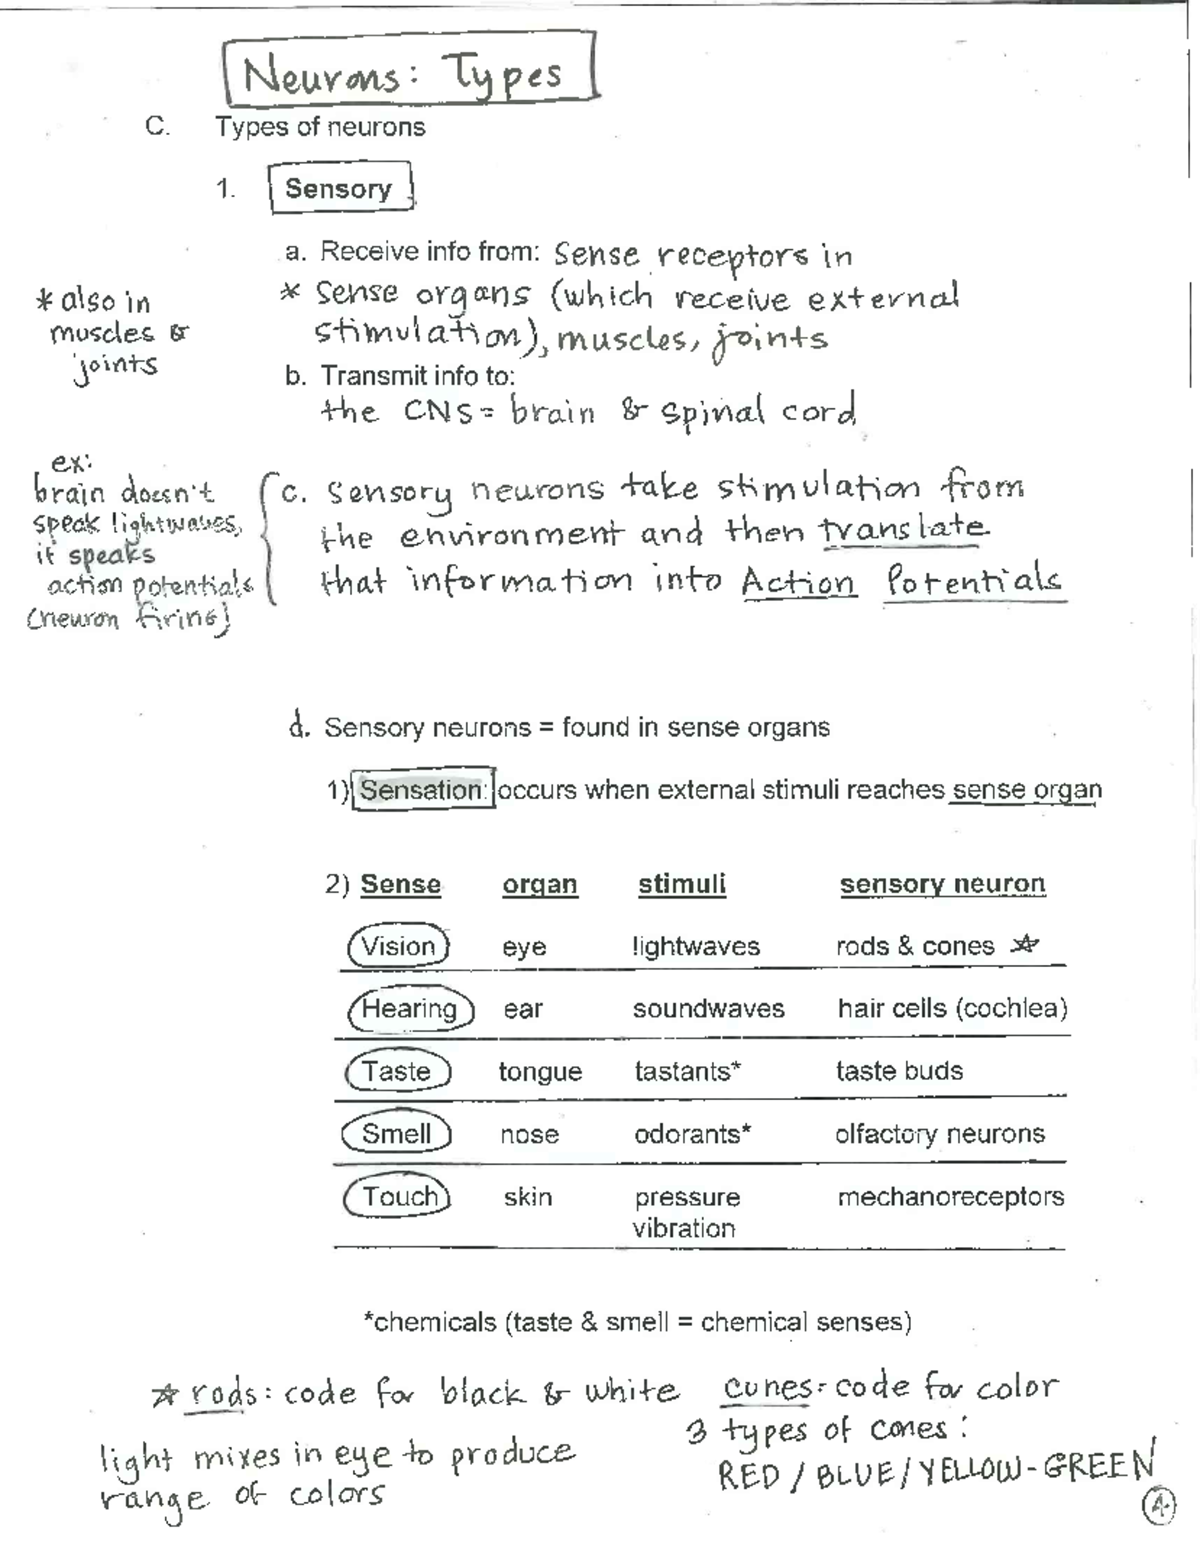 Neurons: Types
C. Types of neurons
1. Sensory
a. Receive info from: Sense receptors in
* Sense organs (which receive external
stimulation), muscles, joints
* also in
muscles &
joints
b. Transmit info to:
the CNS = brain & spinal cord
ex:
brain doesn't
speak lightwaves,
it speaks
action potentials
(neuron firing)
c. Sensory neurons take stimulation from
the environment and then translate
that information into Action Potentials
d. Sensory neurons = found in sense organs
1) Sensation: occurs when external stimuli reaches sense organ
2) Sense organ stimuli sensory neuron
Vision eye lightwaves rods & cones ☆
Hearing ear soundwaves hair cells (cochlea)
Taste tongue tastants* taste buds
Smell nose odorants* olfactory neurons
Touch skin pressure mechanoreceptors
vibration
*chemicals (taste & smell = chemical senses)
☆ rods: code for black & white
light mixes in eye to produce
range of colors
cones = code for color
3 types of cones:
RED / BLUE / YELLOW-GREEN
4